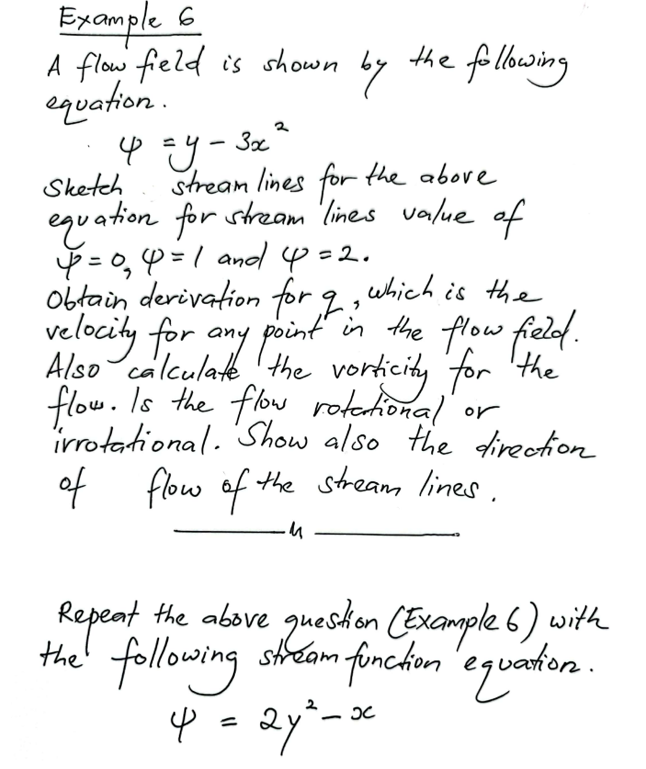 Example 6
A flow field is shown by the following
equation.
ψ = y - 3x²
Sketch stream lines for the above
equation for stream lines value of
ψ = 0, ψ = 1 and ψ = 2.
Obtain derivation for q, which is the
velocity for any point in the flow field.
Also calculate the vorticity for the
flow. Is the flow rotational or
irrotational. Show also the direction
of flow of the stream lines.
Repeat the above question (Example 6) with
the following stream function equation.
ψ = 2y² - x